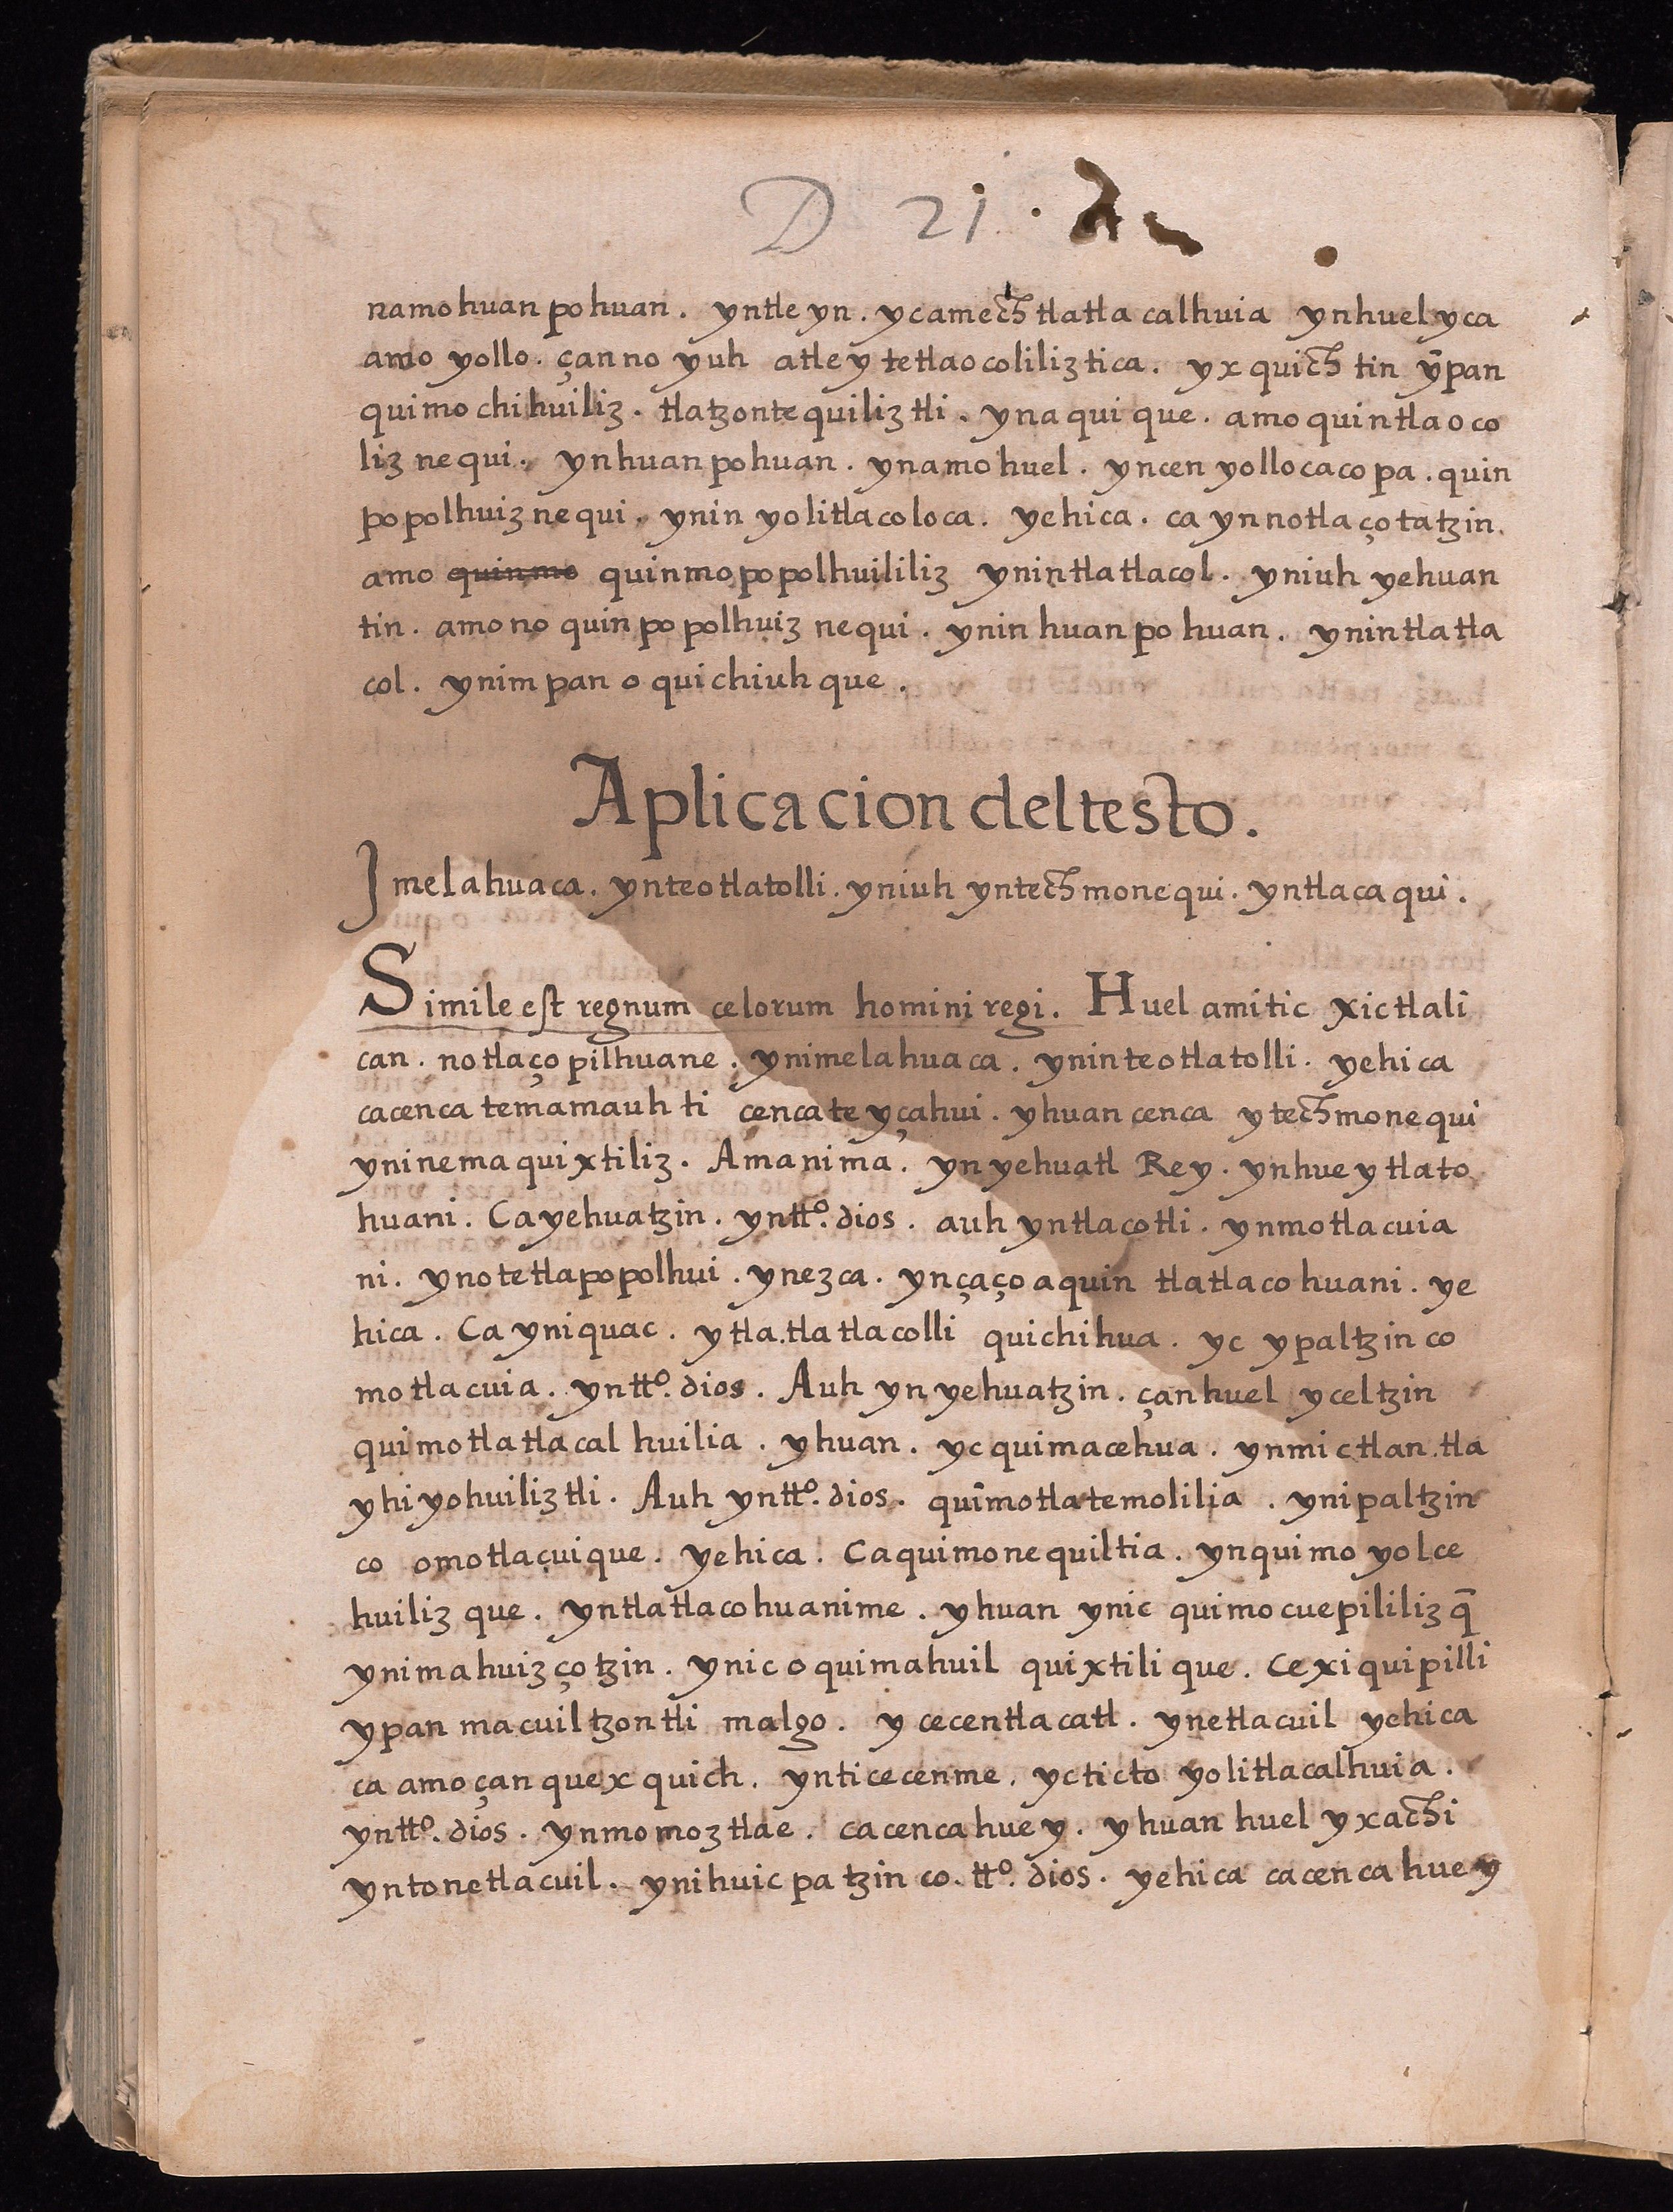 D 21.
namohuanpohuan. yntleyn. ycamech tlatlacalhuia ynhuelyca
amo yollo. çanno yuh atley tetlaocoliliztica. yxquich tin ȳpan
quimochihuiliz. tlatzontequiliztli. ynaquique. amo quintlaoco
liz nequi. ynhuanpohuan. ynamohuel. yncenyollocacopa. quin
popolhuiznequi. ynin yolitlacoloca. yehica. ca ynnotlaçotatzin.
amo quinmo quinmopopolhuililiz ynintlatlacol. yniuh yehuan
tin. amono quinpopolhuiz nequi. ynin huanpohuan. ynintlatla
col. ynimpan oquichiuhque.
Aplicacion deltesto.
Jmelahuaca. ynteotlatolli. yniuh yntechmonequi. yntlacaqui.
Simile est regnum celorum homini regi. Huel amitic xictlali
can. notlaçopilhuane. ynimelahuaca. yninteotlatolli. yehica
cacenca temamauhti cencateyçahui. yhuan cenca ytechmonequi
yninemaquixtiliz. Amanima. ynyehuatl Rey. ynhueytlato
huani. Cayehuatzin. yntto. dios. auh yntlacotli. ynmotlacuia
ni. ynotetlapopolhui. ynezca. ynçaçoaquin tlatlacohuani. ye
hica. Ca yniquac. ytla.tlatlacolli quichihua. yc ypaltzinco
motlacuia. yntto. dios. Auh ynyehuatzin. çanhuel yceltzin
quimotlatlacalhuilia. yhuan. yc quimacehua. ynmictlan.tla
yhiyohuiliztli. Auh yntto. dios. quīmotlatemolilia. ynipaltzin
co omotlaçuique. yehica. Caquimonequiltia. ynquimoyolce
huilizque. yntlatlacohuanime. yhuan ynic quimocuepililizq̄
ynimahuizçotzin. ynic oquimahuil quixtilique. Cexiquipilli
ypan macuiltzontli malgo. ycecentlacatl. ynetlacuil yehica
ca amoçanquexquich. ynticecenme. ycticto yolitlacalhuia.
yntto. dios. ynmomoztlae. cacencahuey. yhuan huel yxachi
yntonetlacuil. ynihuicpatzinco. tto. dios. yehica cacencahuey